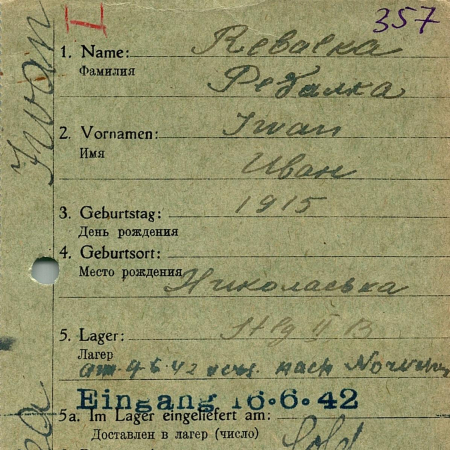 357
I
Iwan
1. Name: Rebalka
Фамилия Ребалка
2. Vornamen: Iwan
Имя Иван
3. Geburtstag: 1915
День рождения
4. Geburtsort:
Место рождения Николаевка
5. Lager: Stlg II B
Лагер
am 9.6.42 vers. nach Norwegen
Eingang 16.6.42
5a. Im Lager eingeliefert am:
Доставлен в лагер (число)